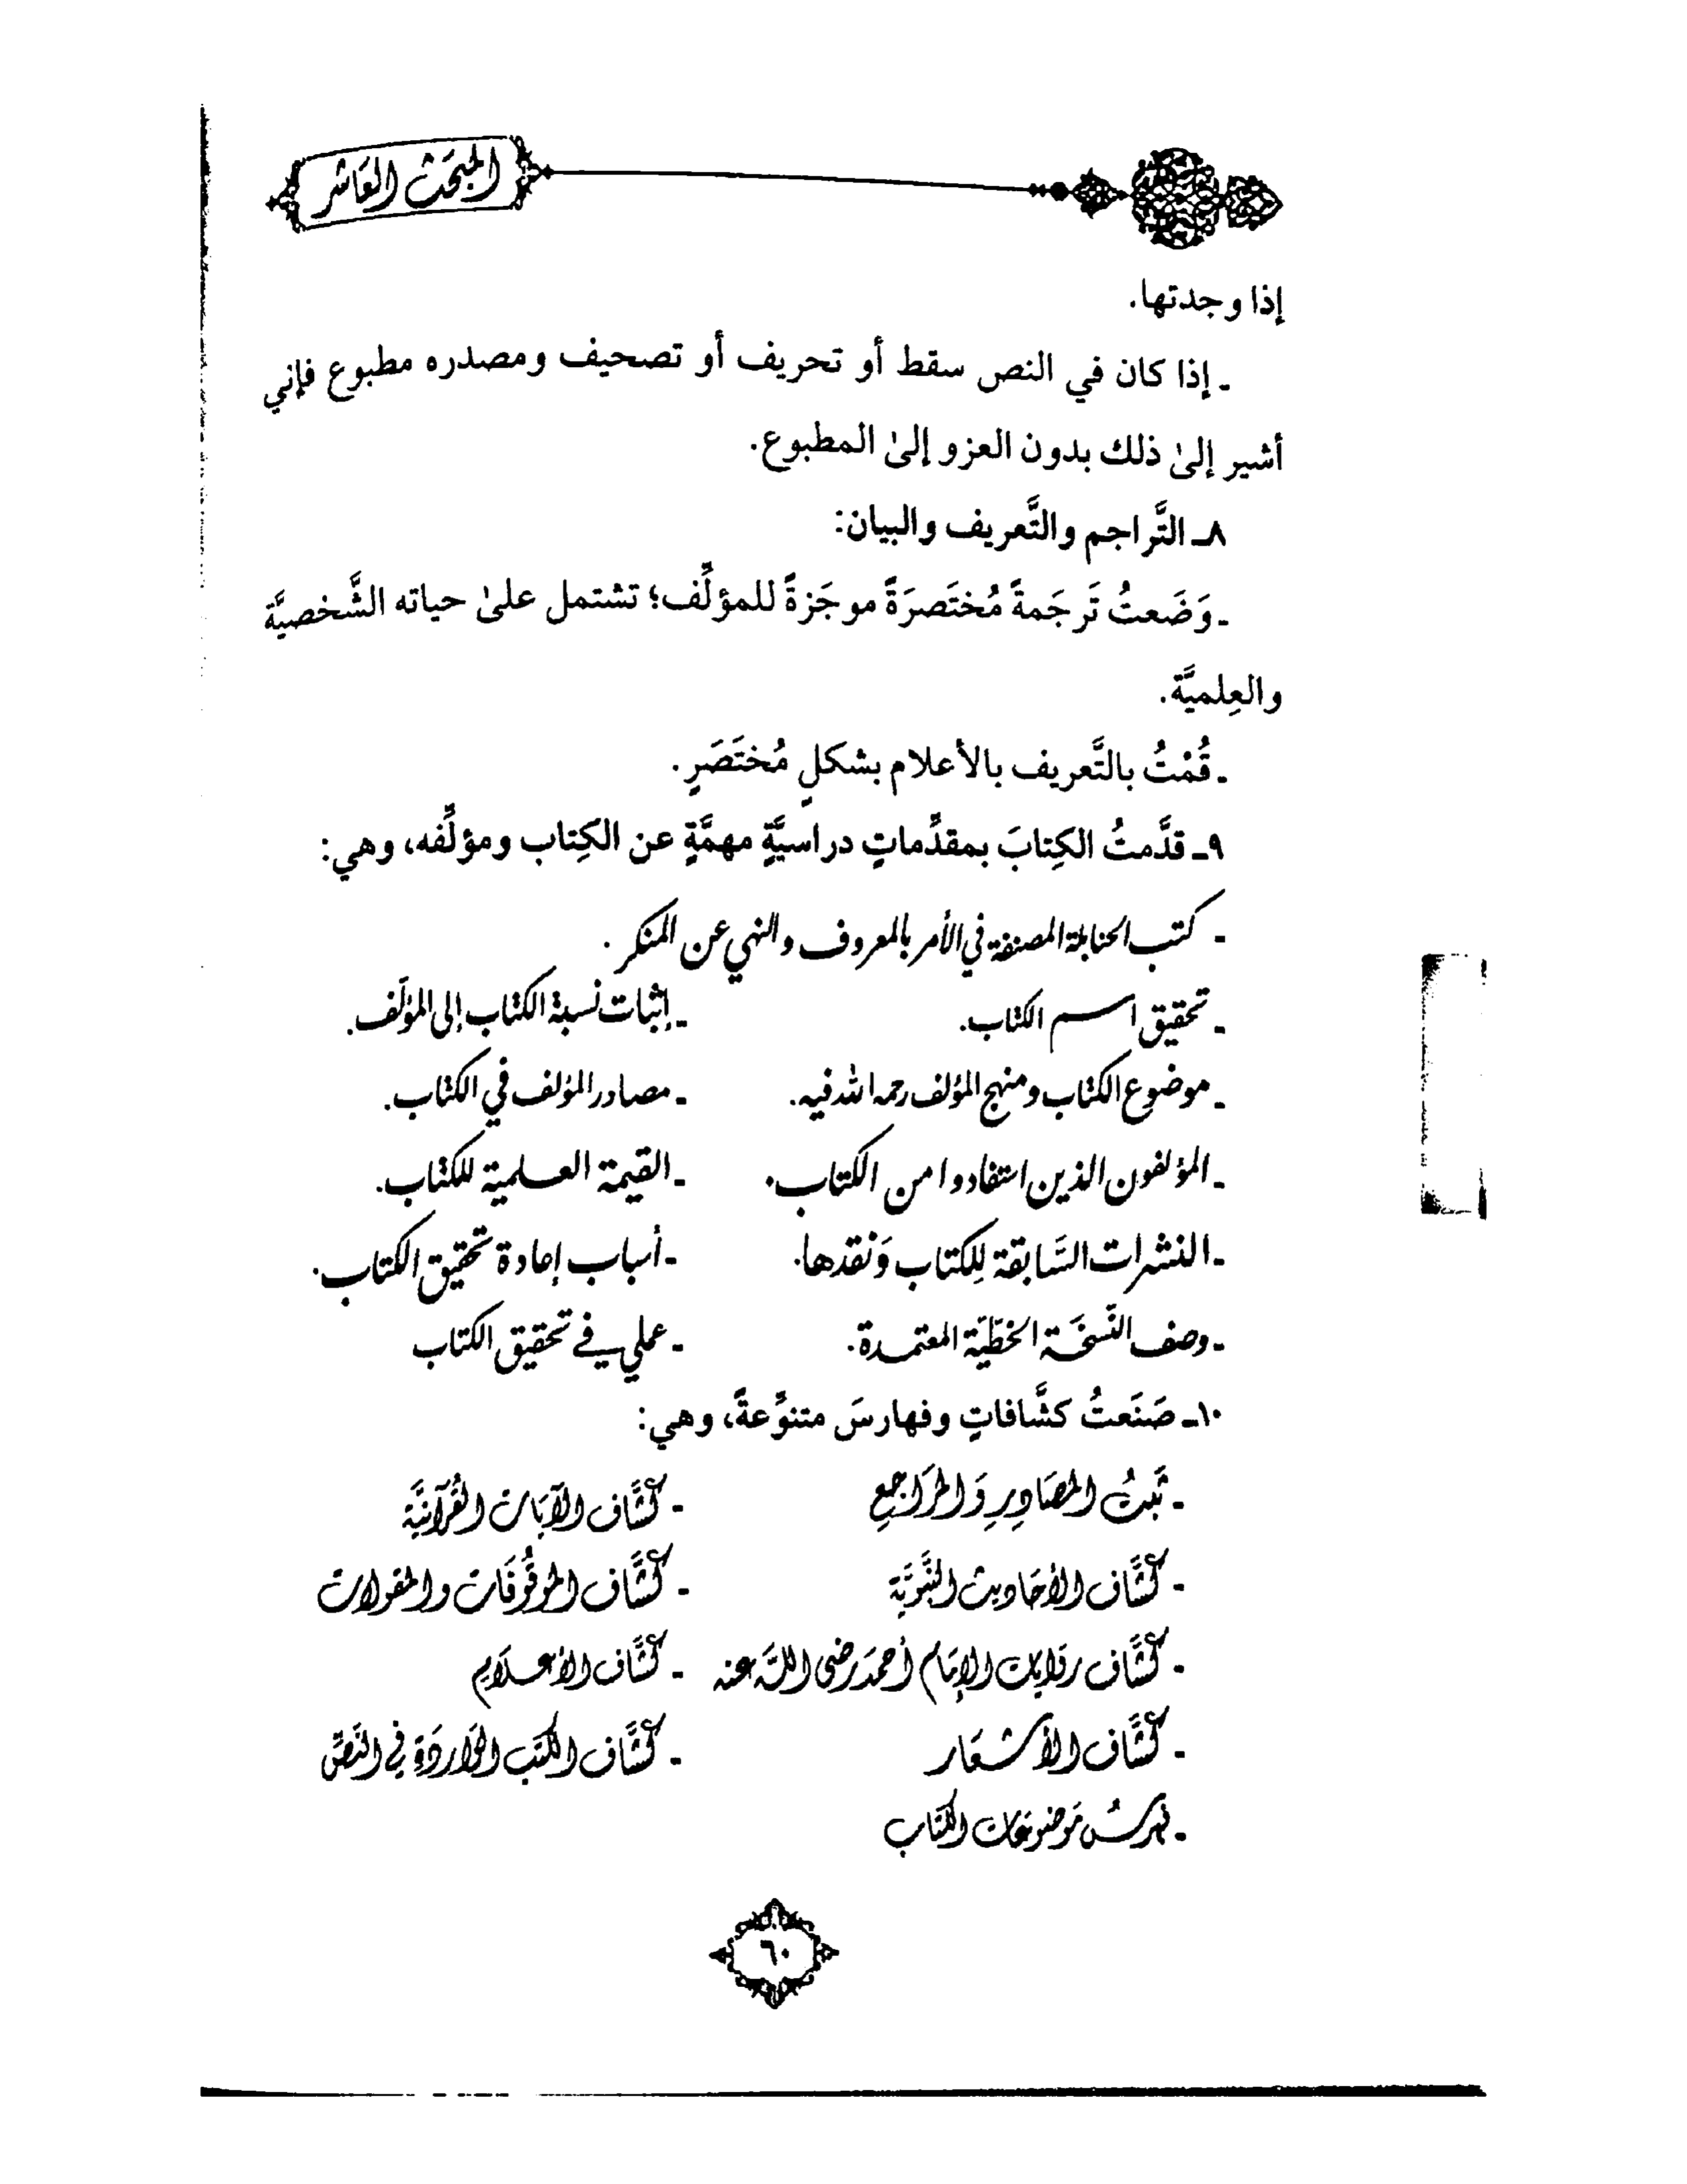 المبحث العاشر
إذا وجدتها.
ـ إذا كان في النص سقط أو تحريف أو تصحيف ومصدره مطبوع فإني
أشير إلىٰ ذلك بدون العزو إلىٰ المطبوع.
٨ـ التَّراجم والتَّعريف والبيان:
ـ وَضَعتُ تَرجَمةً مُختَصرَةً موجَزةً للمؤلِّف؛ تشتمل علىٰ حياته الشَّخصيَّة
والعِلميَّة.
ـ قُمْتُ بالتَّعريف بالأعلام بشكلٍ مُختَصَرٍ.
٩ـ قدَّمتُ الكِتابَ بمقدِّماتٍ دراسيَّةٍ مهمَّةٍ عن الكِتاب ومؤلِّفه، وهي:
ـ كتب الحنابلة المصنفة في الأمر بالمعروف والنهي عن المنكر.
ـ تحقيق اسم الكتاب. ـ إثبات نسبة الكتاب إلى المؤلف.
ـ موضوع الكتاب ومنهج المؤلف رحمه الله فيه. ـ مصادر المؤلف في الكتاب.
ـ المؤلفون الذين استفادوا من الكتاب. ـ القيمة العلمية للكتاب.
ـ النشرات السَّابقة لِلكتاب وَنقدها. ـ أسباب إعادة تحقيق الكتاب.
ـ وصف النّسخَة الخطّيّة المعتمدة. ـ عملي في تحقيق الكتاب
١٠ـ صَنَعتُ كشَّافاتٍ وفهارسَ متنوِّعةً، وهي:
ـ ثَبتُ المصَادِرِ وَالمرَاجِعِ ـ كشَّاف الآيَات القُرآنيَّة
ـ كشَّاف الأحَاديث النَّبَويَّة ـ كشَّاف الموقُوفَات والمقولات
ـ كشَّاف روَايات الإمَام أحمَد رضي اللَّه عنه ـ كشَّاف الأعلَام
ـ كشَّاف الأشعَار ـ كشَّاف الكتب الوَاردَة في النَّصِّ
ـ فهرسُ مَوضوعَات الكتَاب
٦٠